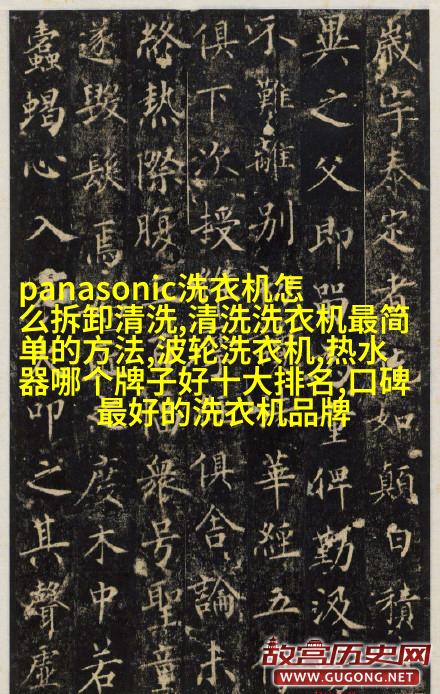 歲宇泰定者如顛白積
異之父即俾勤汲
不難離別華經五
俱下次授俱舍論未
終熱際腹眾号聖童
遂毀髮焉度木中若
蠹蝎心入印之其聲虛
panasonic洗衣机怎
么拆卸清洗,清洗洗衣机最简
单的方法,波轮洗衣机,热水
器哪个牌子好十大排名,口碑
最好的洗衣机品牌
故宫历史网
WWW.GUGONG.NET